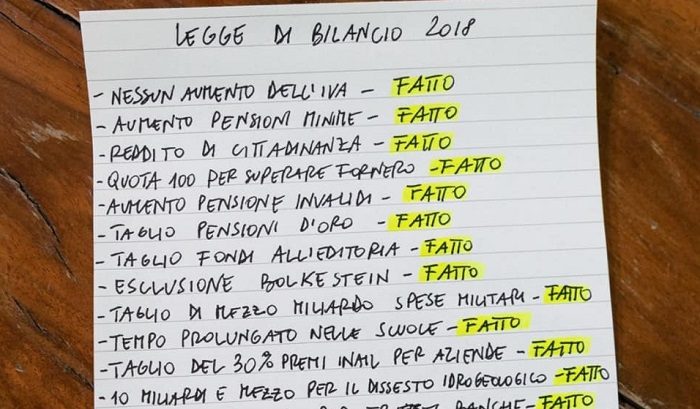 LEGGE DI BILANCIO 2018
- NESSUN AUMENTO DELL'IVA - FATTO
- AUMENTO PENSIONI MINIME - FATTO
- REDDITO DI CITTADINANZA - FATTO
- QUOTA 100 PER SUPERARE FORNERO - FATTO
- AUMENTO PENSIONE INVALIDI - FATTO
- TAGLIO PENSIONI D'ORO - FATTO
- TAGLIO FONDI ALL'EDITORIA - FATTO
- ESCLUSIONE BOLKESTEIN - FATTO
- TAGLIO DI MEZZO MILIARDO SPESE MILITARI - FATTO
- TEMPO PROLUNGATO NELLE SCUOLE - FATTO
- TAGLIO DEL 30% PREMI INAIL PER AZIENDE - FATTO
- 10 MILIARDI E MEZZO PER IL DISSESTO IDROGEOLOGICO - FATTO
BANCHE - FATTO